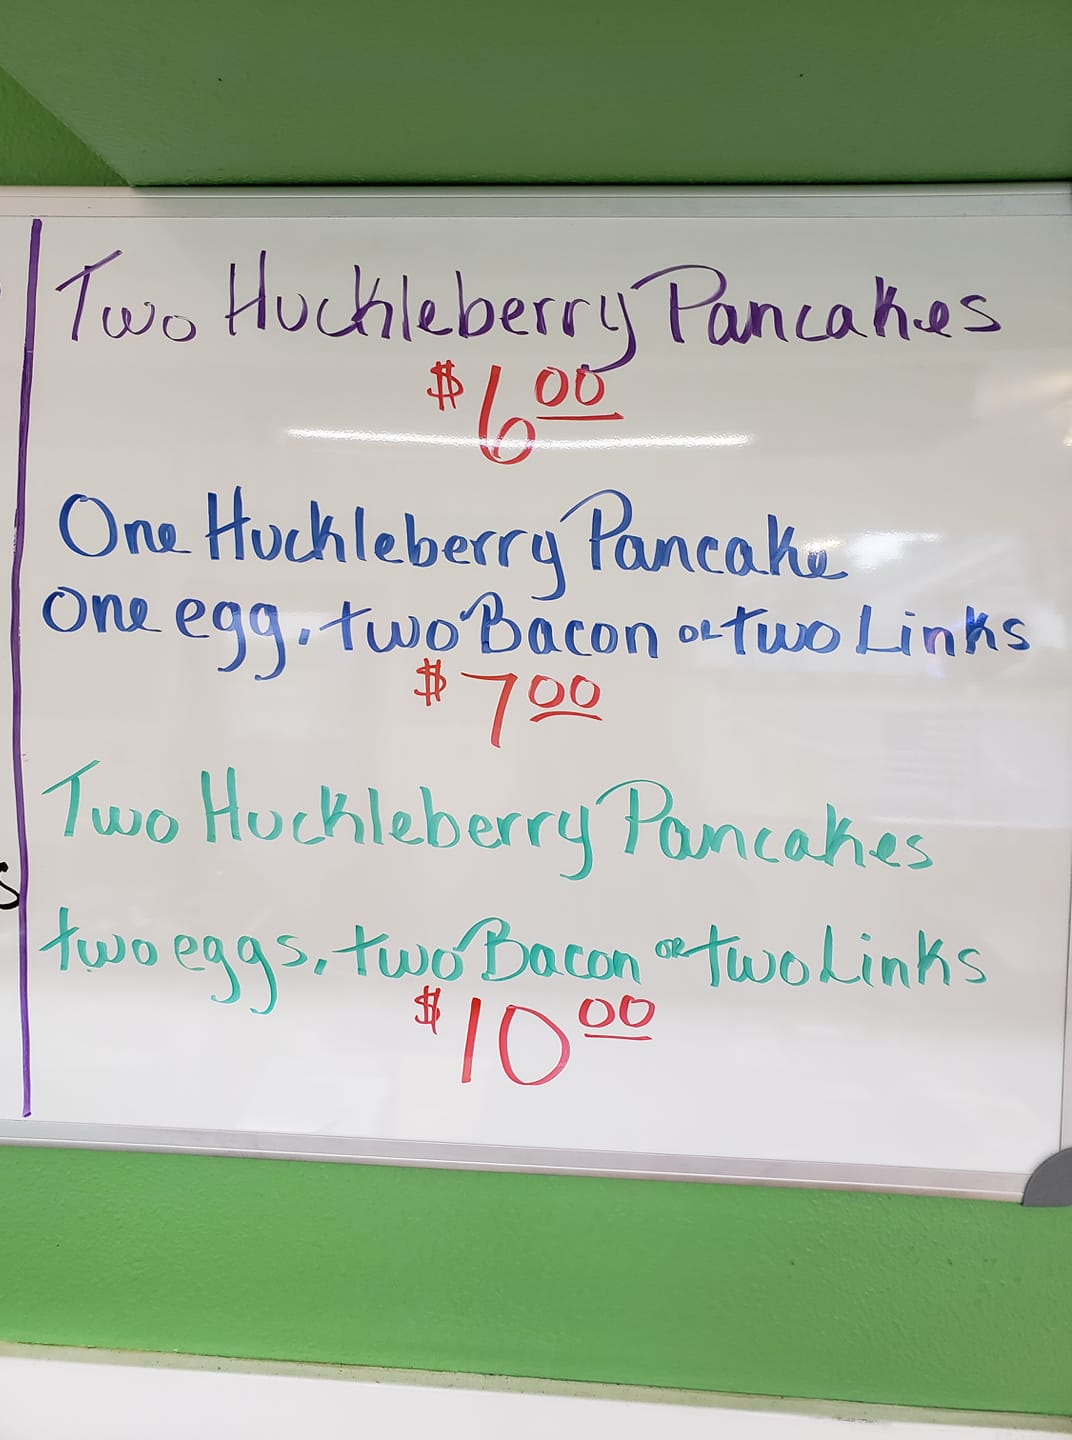 Two Huckleberry Pancakes
$6.00
One Huckleberry Pancake
one egg, two Bacon or two Links
$7.00
Two Huckleberry Pancakes
two eggs, two Bacon or two Links
$10.00